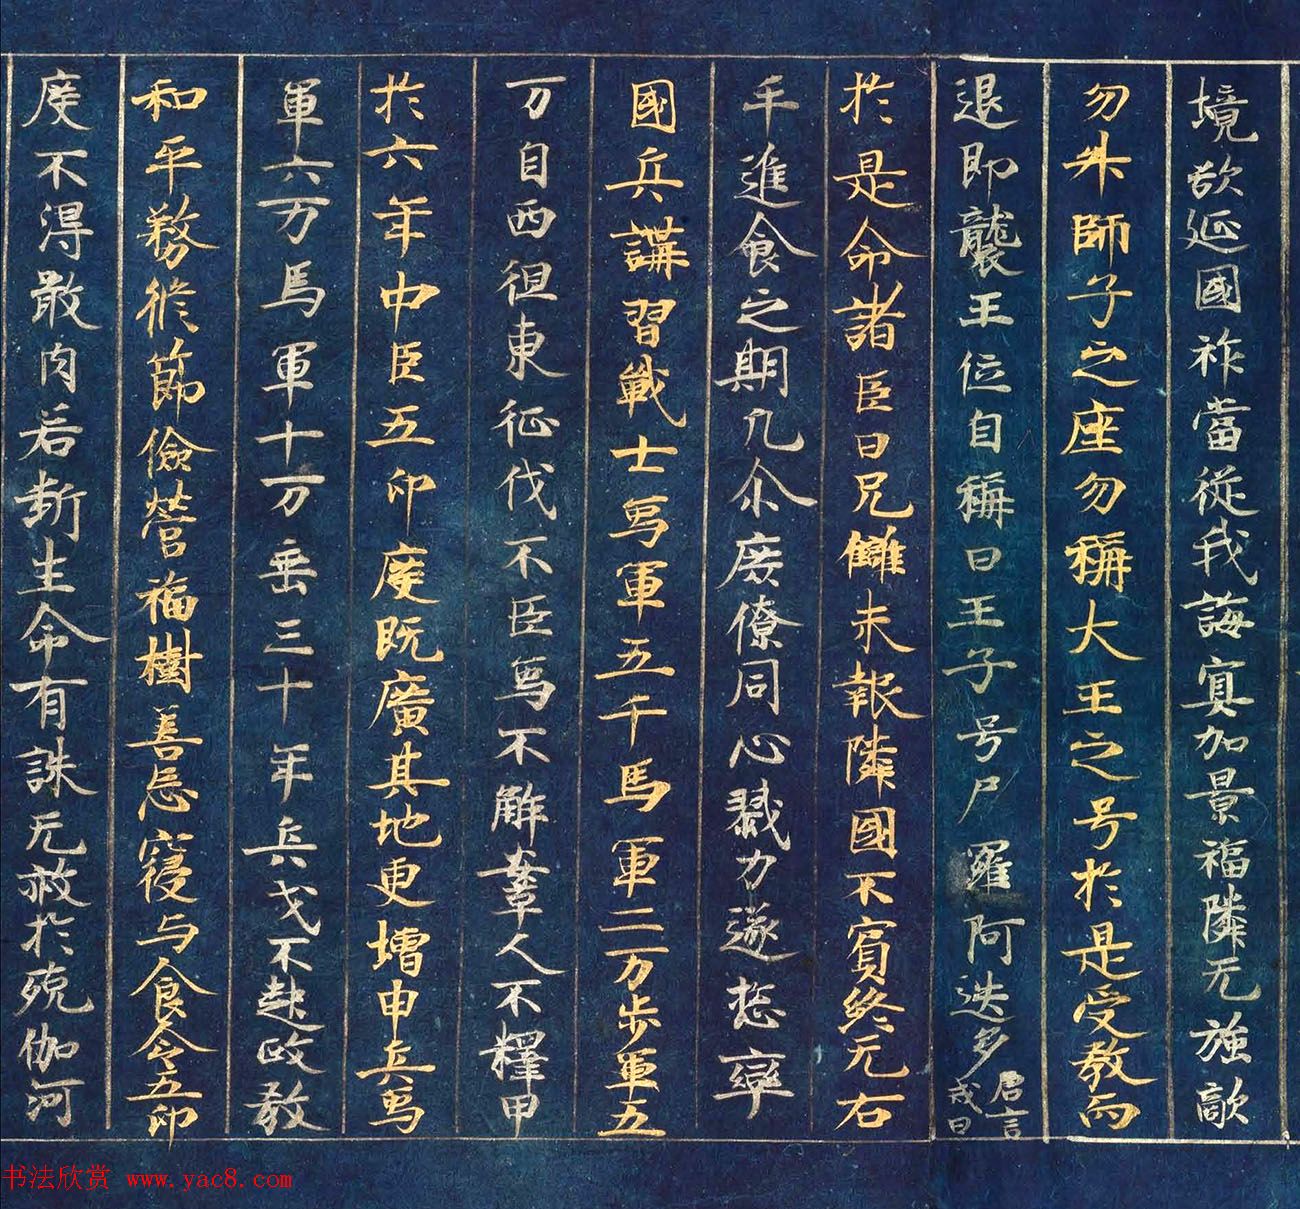 境欲延國祚當從我誨寘加景福隣无強敵
勿㳍師子之座勿稱大王之号於是受教而
退即襲王位自稱曰王子号尸羅阿迭多唐言戒日
於是命諸臣曰兄讎未報隣國不賓終无右
手進食之期凡尒庶僚同心戮力遂惣率
國兵講習戰士烏軍五千馬軍二万步軍五
万自西徂東征伐不臣烏不解𡙇人不釋甲
於六年中臣五印度既廣其地更增甲兵烏
軍六万馬軍十万垂三十年兵戈不起政教
和平務脩節儉營福樹善忘寢与食令五印
度不得噉肉若斷生命有誅无赦於殑伽河
书法欣赏 www.yac8.com